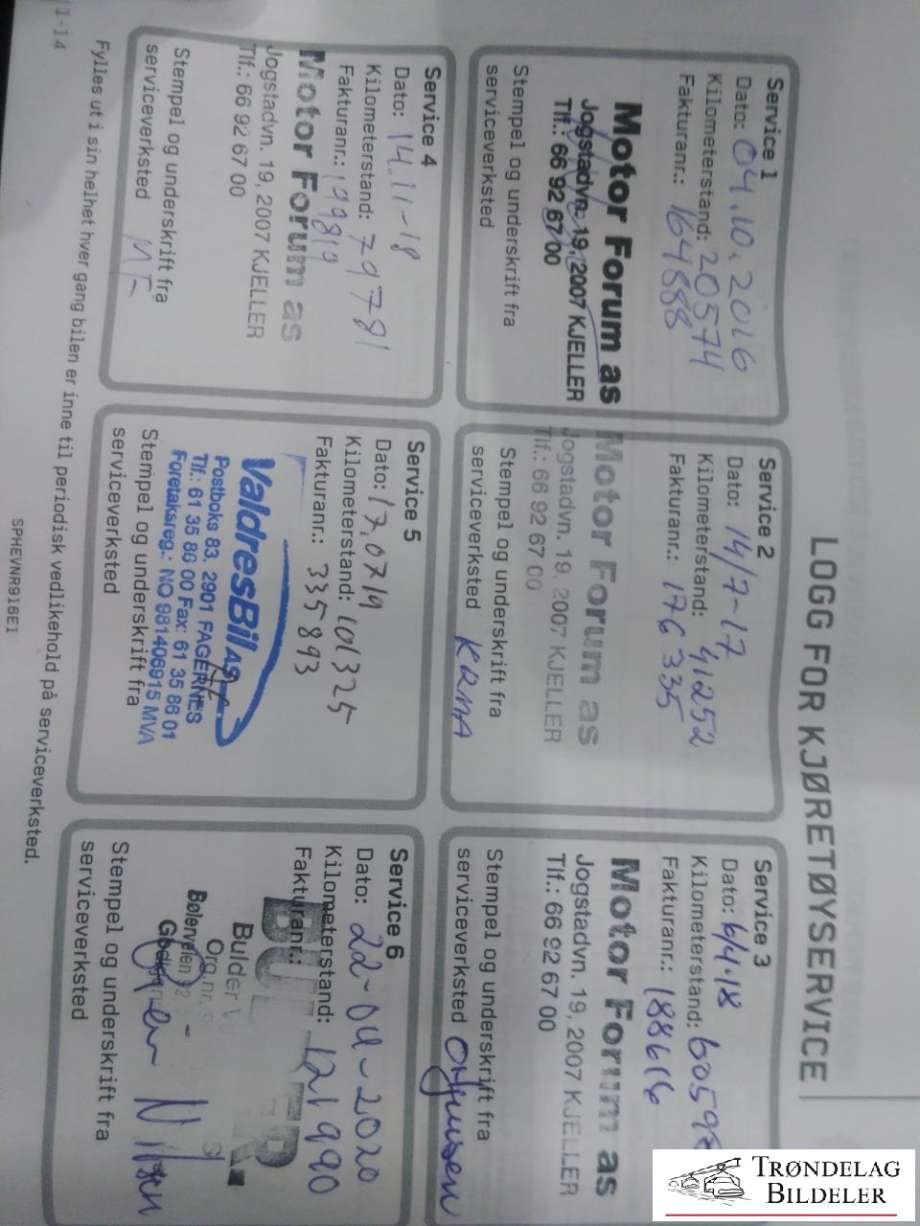 LOGG FOR KJØRETØYSERVICE
Service 1
Dato: 04.10.2016
Kilometerstand: 20574
Fakturanr.: 164888
Motor Forum as
Jogstadvn. 19, 2007 KJELLER
Tlf.: 66 92 67 00
Stempel og underskrift fra
serviceverksted
Service 2
Dato: 14/7-17
Kilometerstand: 41252
Fakturanr.: 176335
Motor Forum as
Jogstadvn. 19, 2007 KJELLER
Tlf.: 66 92 67 00
Stempel og underskrift fra
serviceverksted KRMA
Service 3
Dato: 6/4.18
Kilometerstand:
Fakturanr.: 188616
Motor Forum as
Jogstadvn. 19, 2007 KJELLER
Tlf.: 66 92 67 00
Stempel og underskrift fra
serviceverksted
Service 4
Dato: 14.11-18
Kilometerstand: 79781
Fakturanr.: 199819
Motor Forum as
Jogstadvn. 19, 2007 KJELLER
Tlf.: 66 92 67 00
Stempel og underskrift fra
serviceverksted MF
Service 5
Dato: 17.0719
Kilometerstand: 101325
Fakturanr.: 335893
ValdresBil AS
Postboks 83, 2901 FAGERNES
Tlf.: 61 35 86 00 Fax: 61 35 86 01
Foretaksreg.: NO 981406915 MVA
Stempel og underskrift fra
serviceverksted
Service 6
Dato: 22-04-2020
Kilometerstand: 121990
Fakturanr.:
Bulder
Org.nr.
Bølerveien
Stempel og underskrift fra
serviceverksted
Fylles ut i sin helhet hver gang bilen er inne til periodisk vedlikehold på serviceverksted.
1-14
SPHEVNR916E1
TRØNDELAG
BILDELER